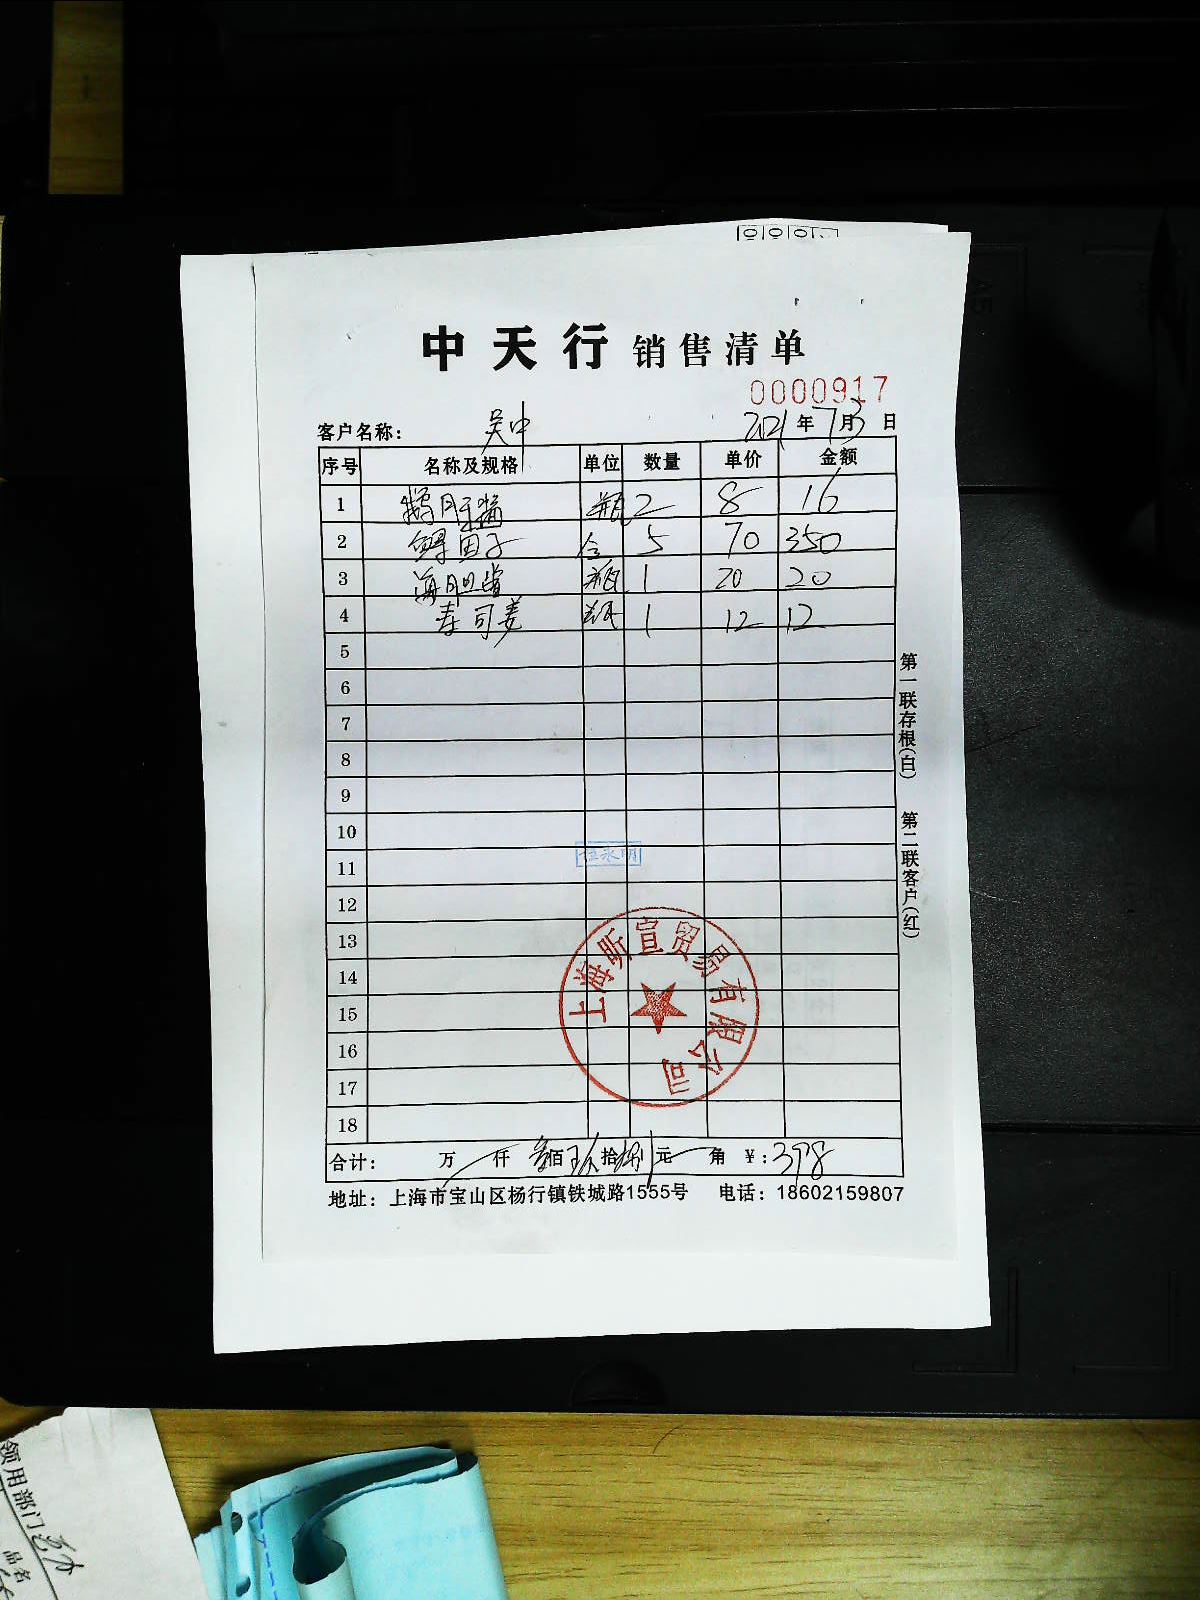 中天行 销售清单
0000917
客户名称: 吴中 2021年7月3日
序号 名称及规格 单位 数量 单价 金额
1 鹅肝酱 瓶 2 8 16
2 蟹田子 合 5 70 350
3 海胆酱 瓶 1 20 20
4 寿司姜 瓶 1 12 12
5
6
7
8
9
10
11
12
13
14
15
16
17
18
任永明
上海昕宣贸易有限公司
合计: 万 仟 叁佰玖拾捌元 角 ¥:398
地址: 上海市宝山区杨行镇铁城路1555号 电话: 18602159807
第一联存根(白) 第二联客户(红)
领用部门
品名